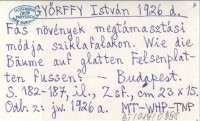 GYÖRFFY István 1926 d.
Fás növények megtámasztási
módja sziklafalakon. Wie die
Bäume auf glatten Felsenplat-
ten fussen? - Budapest.
S. 182-187, il., 2 sf., cm 23 x 15.
Odb. z: jw. 1926 a. MT-WHP-TNP